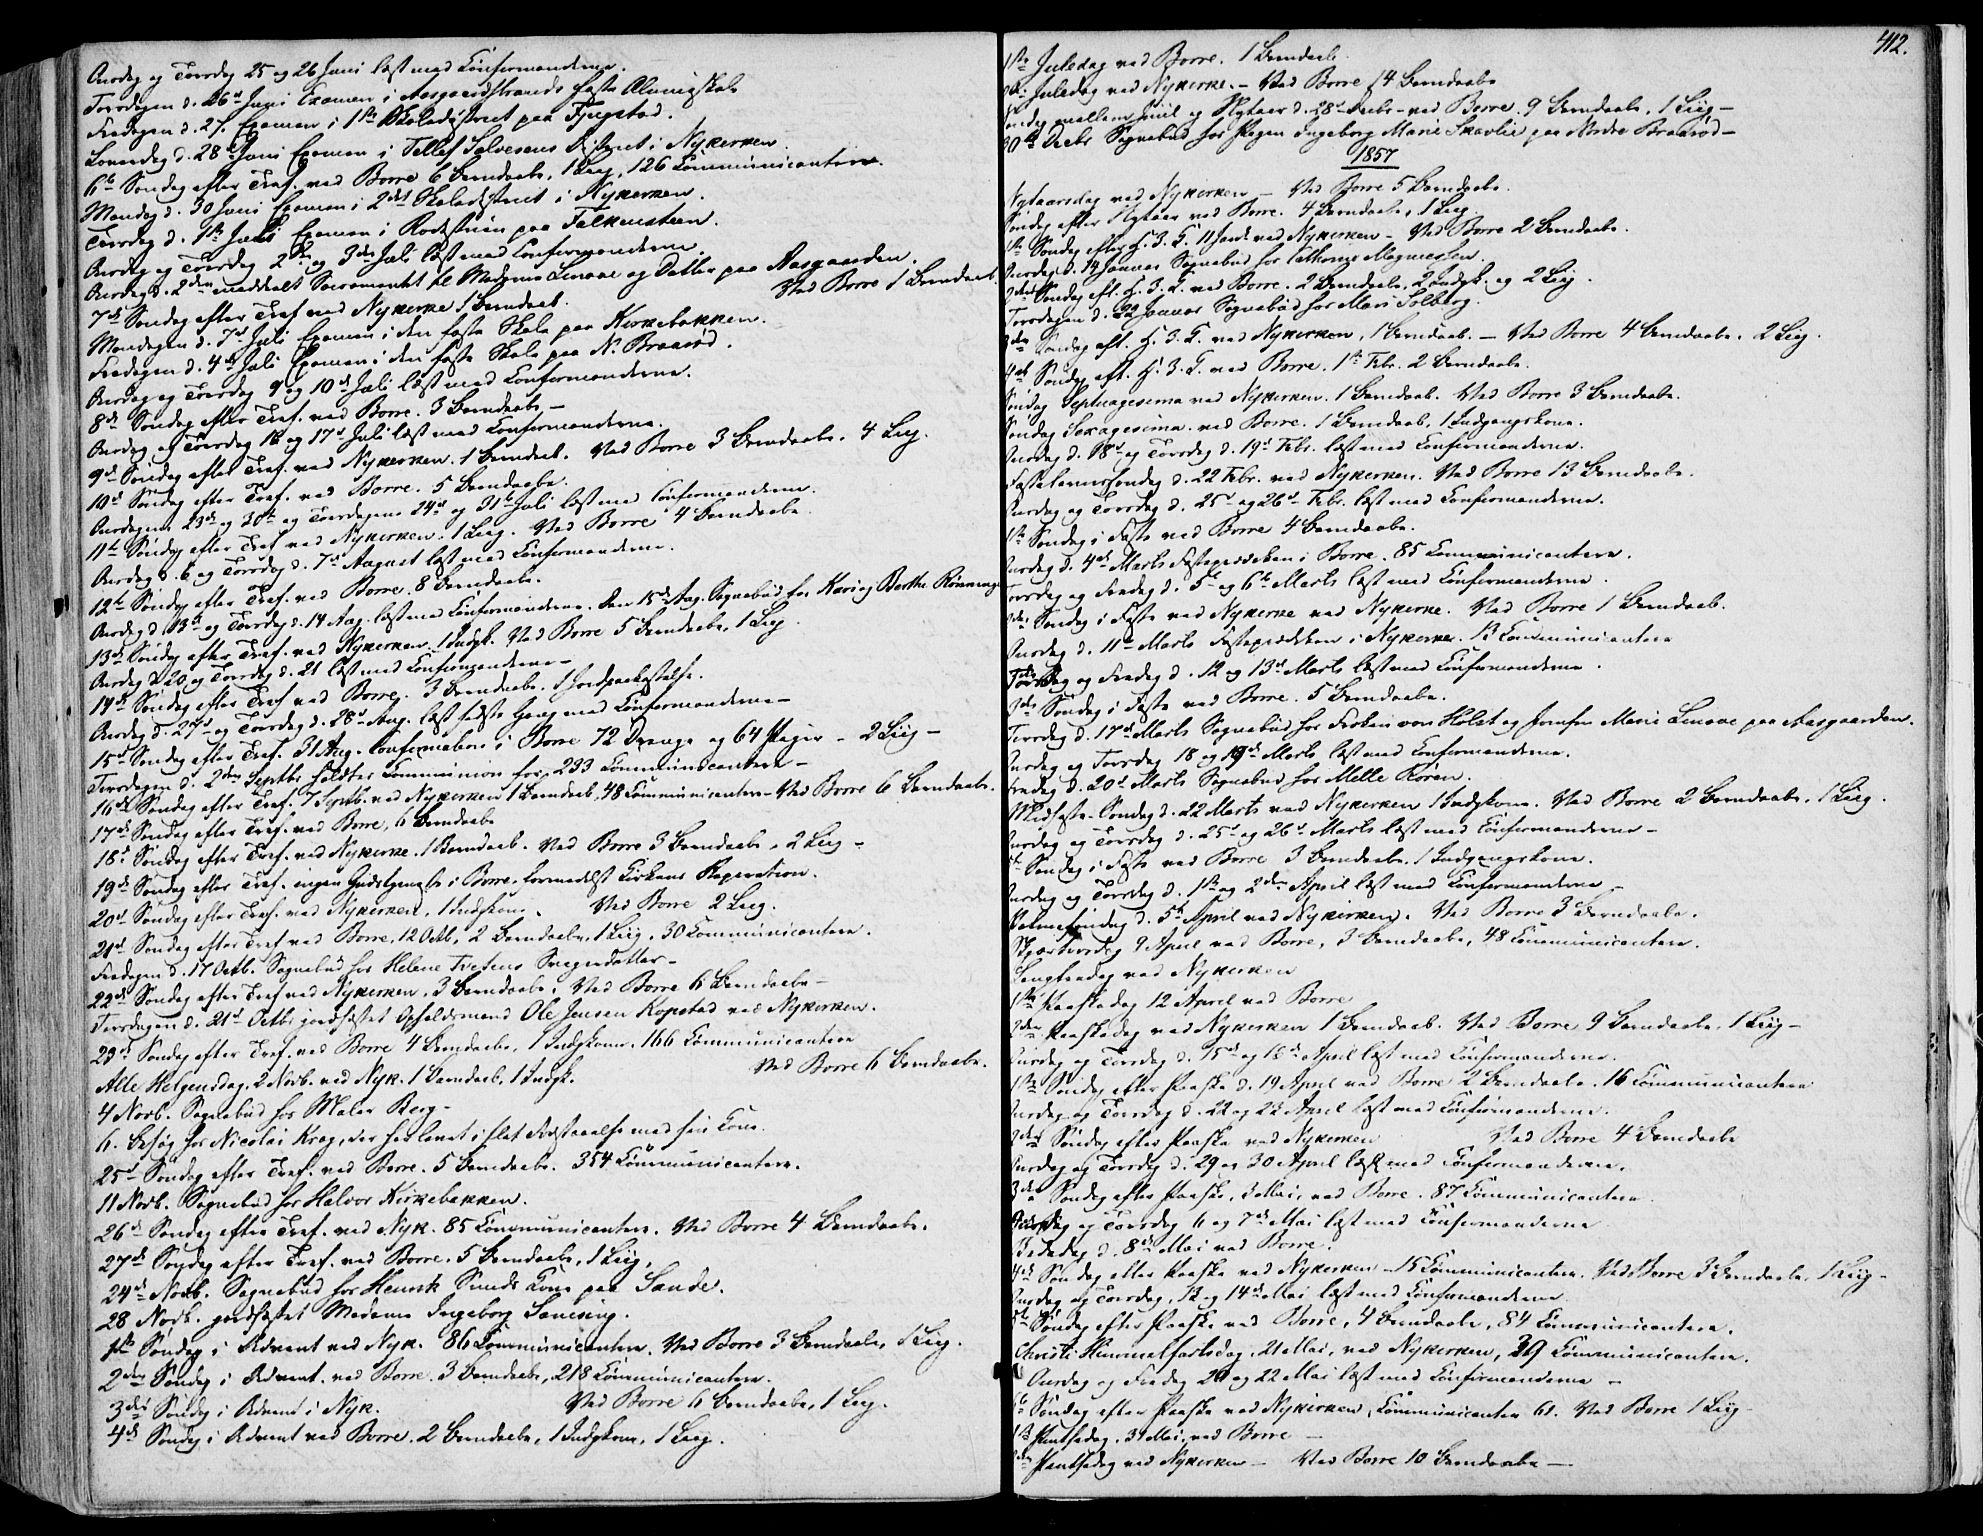 Onsdag og Torsdag 25 og 26 Juni læst med Confirmanderne.
Torsdagen d. 26d Juni Examen i Aasgaardstrands faste Almueskole
Fredagen d. 27. Examen i 1ste Skoledistrict paa Fyugstad.
Løverdag d. 28d Juni Examen i Tellef Salvesens District i Nykirken.
6te Søndag efter Tref. ved Borre 6 Barndaabe, 1 Liig, 126 Communicantere.
Mandag d. 30 Juni Examen i 2det Skoledistrict i Nykirken.
Tirsdag d. 1ste Juli Examen i paa Falkensteen.
Onsdag og Torsdag 2den og 3die Juli læst med Confirmanderne.
Onsdag d. 2den meddeelt Sacramentet til Madame Linaae og Datter paa Aasgaarden.
7de Søndag efter Tref ved Nykirke 1 Barndaab. Ved Borre 1 Barndaab.
Mandagen d. 7d Juli Examen i den faste Skole paa Kirkebakken.
Fredagen d. 4de Juli Examen i den faste Skole paa N. Braarød.
Onsdag og Torsdag 9 og 10d Juli læst med Confirmanderne.
8de Søndag efter Tref. ved Borre. 3 Barndaabe –
Onsdag og Torsdag 16 og 17d Juli læst med Confirmanderne.
9de Søndag efter Tref. ved Nykirken. 1 Barndaab. Ved Borre 3 Barndaabe. 4 Liig.
10de Søndag efter Tref. ved Borre. 5 Barndaabe.
Onsdagene 23de og 30te og Torsdagene 24de og 31te Juli læst med Confirmanderne.
11te Søndag efter Tref ved Nykirken. 1 Liig. Ved Borre 4 Barndaabe
Onsdag d. 6 og Torsdag d. 7d August læst med Confirmanderne.
12te Søndag efter Tref. ved Borre. 8 Barndaabe.
Onsdag d. 13d og Torsdag d. 14 Aug. læst med Confirmanderne. Den 15de Aug. Sognebud hos Kari og Berthe Rønninge
13de Søndag efter Tref. ved Nykirken. 1 Indgk. Ved Borre 5 Barndaabe, 1 Liig.
Onsdag d. 20 og Torsdag d. 21 læst med Confirmanderne –
14de Søndag efter Tref ved Borre. 3 Barndaabe. 1 Jordpaakastelse.
Onsdag d. 27d og Torsdag d. 28d Aug. læst sidste Gang med Confirmanderne –
15de Søndag efter Tref. 31 Aug. Confirmation i Borre 72 Drenge og 64 Piger – 2 Liig –
Tirsdagen d. 2den Septbr holdtes Communion for 233 Communicantere –
16de Søndag efter Tref. 7 Septb. ved Nykirken 1 Barndaab, 48 Communicantere – Ved Borre 6 Barndaabe.
17de Søndag efter Tref. ved Borre, 6 Barndaabe
18de Søndag efter Tref. ved Nykirke. 1 Barndaab. Ved Borre 3 Barndaabe, 2 Liig –
19de Søndag efter Tref. ingen Gudstjeneste i Borre, formedelst Kirkens Reparation.
20de Søndag efter Tref. ved Nykirken, 1 Indgkone. Ved Borre 2 Liig.
21de Søndag efter Tref ved Borre, 12 Octb, 2 Barndaabe, 1 Liig, 30 Communicantere.
Fredagen d. 17 Octb. Sognebud hos Helene Tvetens Svigerdatter –
22de Søndag efter Tref ved Nykirken, 3 Barndaabe, Ved Borre 6 Barndaabe –
Tirsdagen d. 21d Octbr jordfæstet Opholdsmand Ole Jensen Kopstad ved Nykirken.
23de Søndag efter Tref. ved Borre 4 Barndaabe, 1 Indgkone, 166 Communicantere
Alle Helgensdag, 2 Novb. ved Nyk. 1 Barndaab, 1 Indgk. Ved Borre 6 Barndaabe.
4 Novb. Sognebud hos Maler Berg –
6. Besøg hos Nicolai Krog, der har levet i slet Forstaaelse med sin Kone.
25de Søndag efter Tref. ved Borre. 5 Barndaabe. 354 Communicantere.
11 Novb. Sognebud hos Halvor Kirkebakken.
26de Søndag efter Tref. ved Nyk. 85 Communicantere. Ved Borre 4 Barndaabe.
27de Søndag efter Tref. ved Borre. 5 Barndaabe, 1 Liig,
24de Novb. Sognebud hos Henrik Sunds Kone paa Sande.
28 Novb. jordfæstet Madame Ingeborg
1ste Søndag i Advent ved Nyk. 86 Communicantere. Ved Borre 3 Barndaabe, 1 Liig.
2den Søndag i Advent. ved Borre. 3 Barndaabe, 218 Communicantere.
3die Søndag i Advent i Nyk. Ved Borre 6 Barndaabe, 1 Liig.
4de Søndag i Advent ved Borre. 2 Barndaabe, 1 Indgkone, 1 Liig.
412.
1ste Juledag ved Borre. 1 Barndaab.
2den Juledag ved Nykirke. – Ved Borre 14 Barndaabe
Søndag mellem Juul og Nytaar d. 28d Decbr – ved Borre. 9 Barndaabe, 1 Liig –
30te Decbr Sognebud hos Pigen Ingeborg Marie Skavlie paa Nordre Braarød –
1857
Nytaarsdag ved Nykirken – Ved Borre 5 Barndaabe.
Søndag efter Nytaar ved Borre. 4 Barndaabe, 1 Liig.
1ste Søndag efter H. 3. K. 11 Janr ved Nykirken – Ved Borre 2 Barndaabe.
Onsdag d. 14 Januar Sognebud hos Cathrine Magnussen.
2den Søndag eft. H. 3. K. ved Borre. 2 Barndaabe, 2 Indgk. og 2 Liig.
Torsdagen d. 22 Januar Sognebud hos Mari Solberg.
3die Søndag eft. H. 3. K. ved Nykirken, 1 Barndaab. – Ved Borre 4 Barndaabe. 2 Liig.
4de Søndag eft. H. 3. K. ved Borre. 1ste Febr. 2 Barndaabe.
Søndag Septuagesima ved Nykirken. 1 Barndaab. Ved Borre 3 Barndaabe.
Søndag Sexagesima. ved Borre. 1 Barndaab, 1 Indgangskone.
Onsdag d. 18d og Torsdag d. 19d Febr. læst med Confirmanderne.
Fastelavnssøndag d. 22 Febr. ved Nykirken. Ved Borre 13 Barndaabe.
Onsdag og Torsdag d. 25d og 26d Febr. læst med Confirmanderne.
1ste Søndag i Faste ved Borre 4 Barndaabe.
Onsdag d. 4de Marts Fasteprædiken i Borre. 85 Communicantere.
Torsdag og Fredag d. 5te og 6te Marts læst med Confirmanderne.
2den Søndag i Faste ved Nykirke ved Nykirke. Ved Borre 1 Barndaab.
Onsdag d. 11te Marts Fasteprædiken i Nykirke. 13 Communicantere
Torsdag og Fredag d. 12 og 13de Marts læst med Confirmanderne.
3die Søndag i Faste ved Borre. 5 Barndaabe.
Tirsdag d. 17d Marts Sognebud hos Frøken von Holst og Jomfru Marie Linaae paa Aasgaarden.
Onsdag og Torsdag 18 og 19de Marts læst med Confirmanderne.
Fredag d. 20d Marts Sognebud hos Melle Røren.
Midfaste-Søndag d. 22 Marts ved Nykirken 1 Indgkone. Ved Borre 2 Barndaabe, 1 Liig.
Onsdag og Torsdag d. 25d og 26d Marts læst med Confirmanderne –
5te Søndag i Faste ved Borre 3 Barndaabe. 1 Indgangskone.
Onsdag og Torsdag d. 1ste og 2den April læst med Confirmanderne –
Palmesøndag d. 5te April ved Nykirken. Ved Borre 3 Barndaabe.
Skjærtorsdag 9 April ved Borre, 3 Barndaabe, 48 Communicantere.
Langfredag ved Nykirken
1ste Paaskedag 12 April ved Borre
2den Paaskedag ved Nykirken 1 Barndaab. Ved Borre 9 Barndaabe, 1 Liig –
Onsdag og Torsdag d. 15de og 16de April læst med Confirmanderne.
1ste Søndag efter Paaske d. 19 April ved Borre 2 Barndaabe. 16 Communicantere
Onsdag og Torsdag d. 22 og 23 April læst med Confirmanderne.
2den Søndag efter Paaske ved Nykirken Ved Borre 4 Barndaabe
Onsdag og Torsdag d. 29 og 30 April læst med Confirmanderne.
3die Søndag efter Paaske, 3 Mai, ved Borre. 87 Communicantere.
Onsdag og Torsdag 6 og 7de Mai læst med Confirmanderne
Bededag d. 8de Mai ved Borre.
4de Søndag efter Paaske ved Nykirken – 15 Communicantere. Ved Borre 3 Barndaabe. 1 Liig –
Onsdag og Torsdag, 13 og 14de Mai læst med Confirmanderne.
5te Søndag efter Paaske ved Borre, 4 Barndaabe, 84 Communicantere.
Christi Himmelfartsdag, 21 Mai, ved Nykirken, 39 Communicantere.
Onsdag og Fredag 20 og 22 Mai læst med Confirmanderne –
6te Søndag efter Paaske ved Nykirken, Communicanter 61. Ved Borre 1 Liig
1ste Pintsedag, 31 Mai, ved Borre –
2den Pintsedag ved Nykirken – Ved Borre 10 Barndaabe –